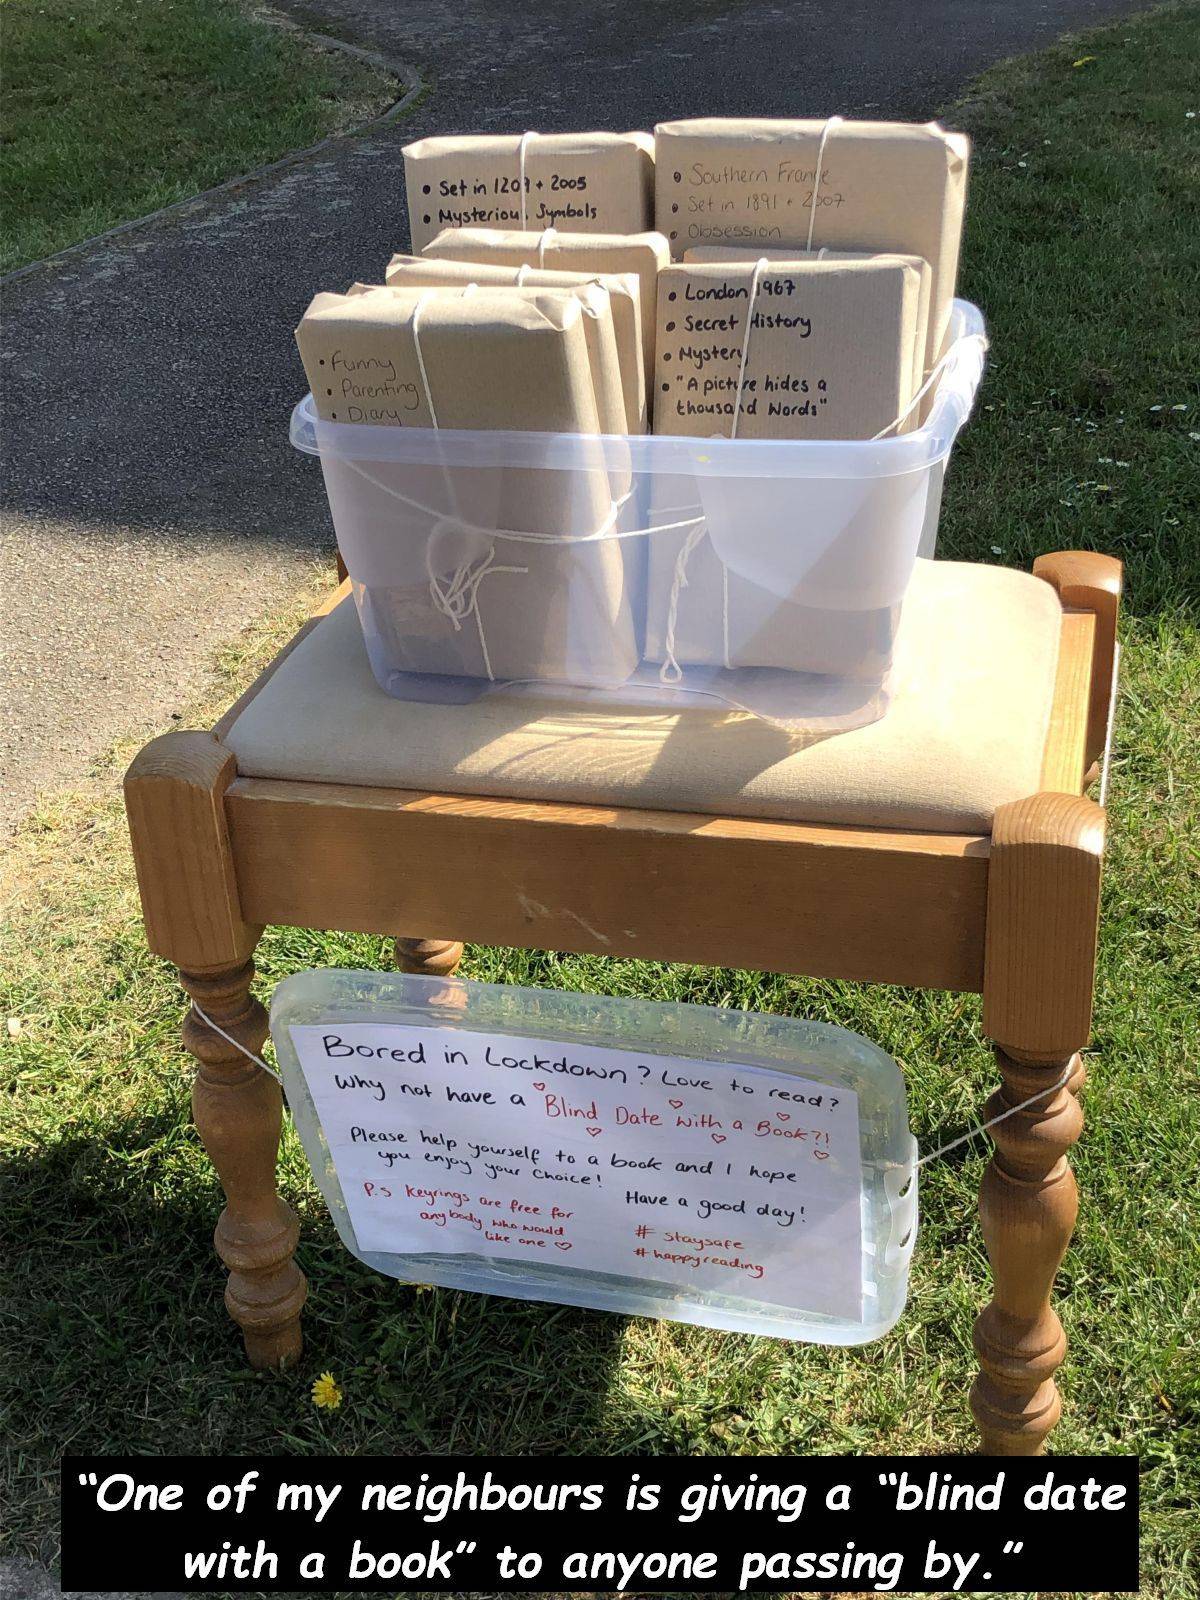 • Set in 1209 + 2005
• Mysterious Symbols
• Southern France
• Set in 1891 + 2007
• Obsession
• London 1967
• Secret History
• Mystery
• "A picture hides a
thousand words"
• Funny
• Parenting
• Diary
Bored in Lockdown? Love to read?
Why not have a Blind Date with a Book?!
Please help yourself to a book and I hope
you enjoy your choice!
Have a good day!
P.S Keyrings are free for
anybody who would
like one ♡
# staysafe
# happyreading
“One of my neighbours is giving a “blind date
with a book” to anyone passing by.”